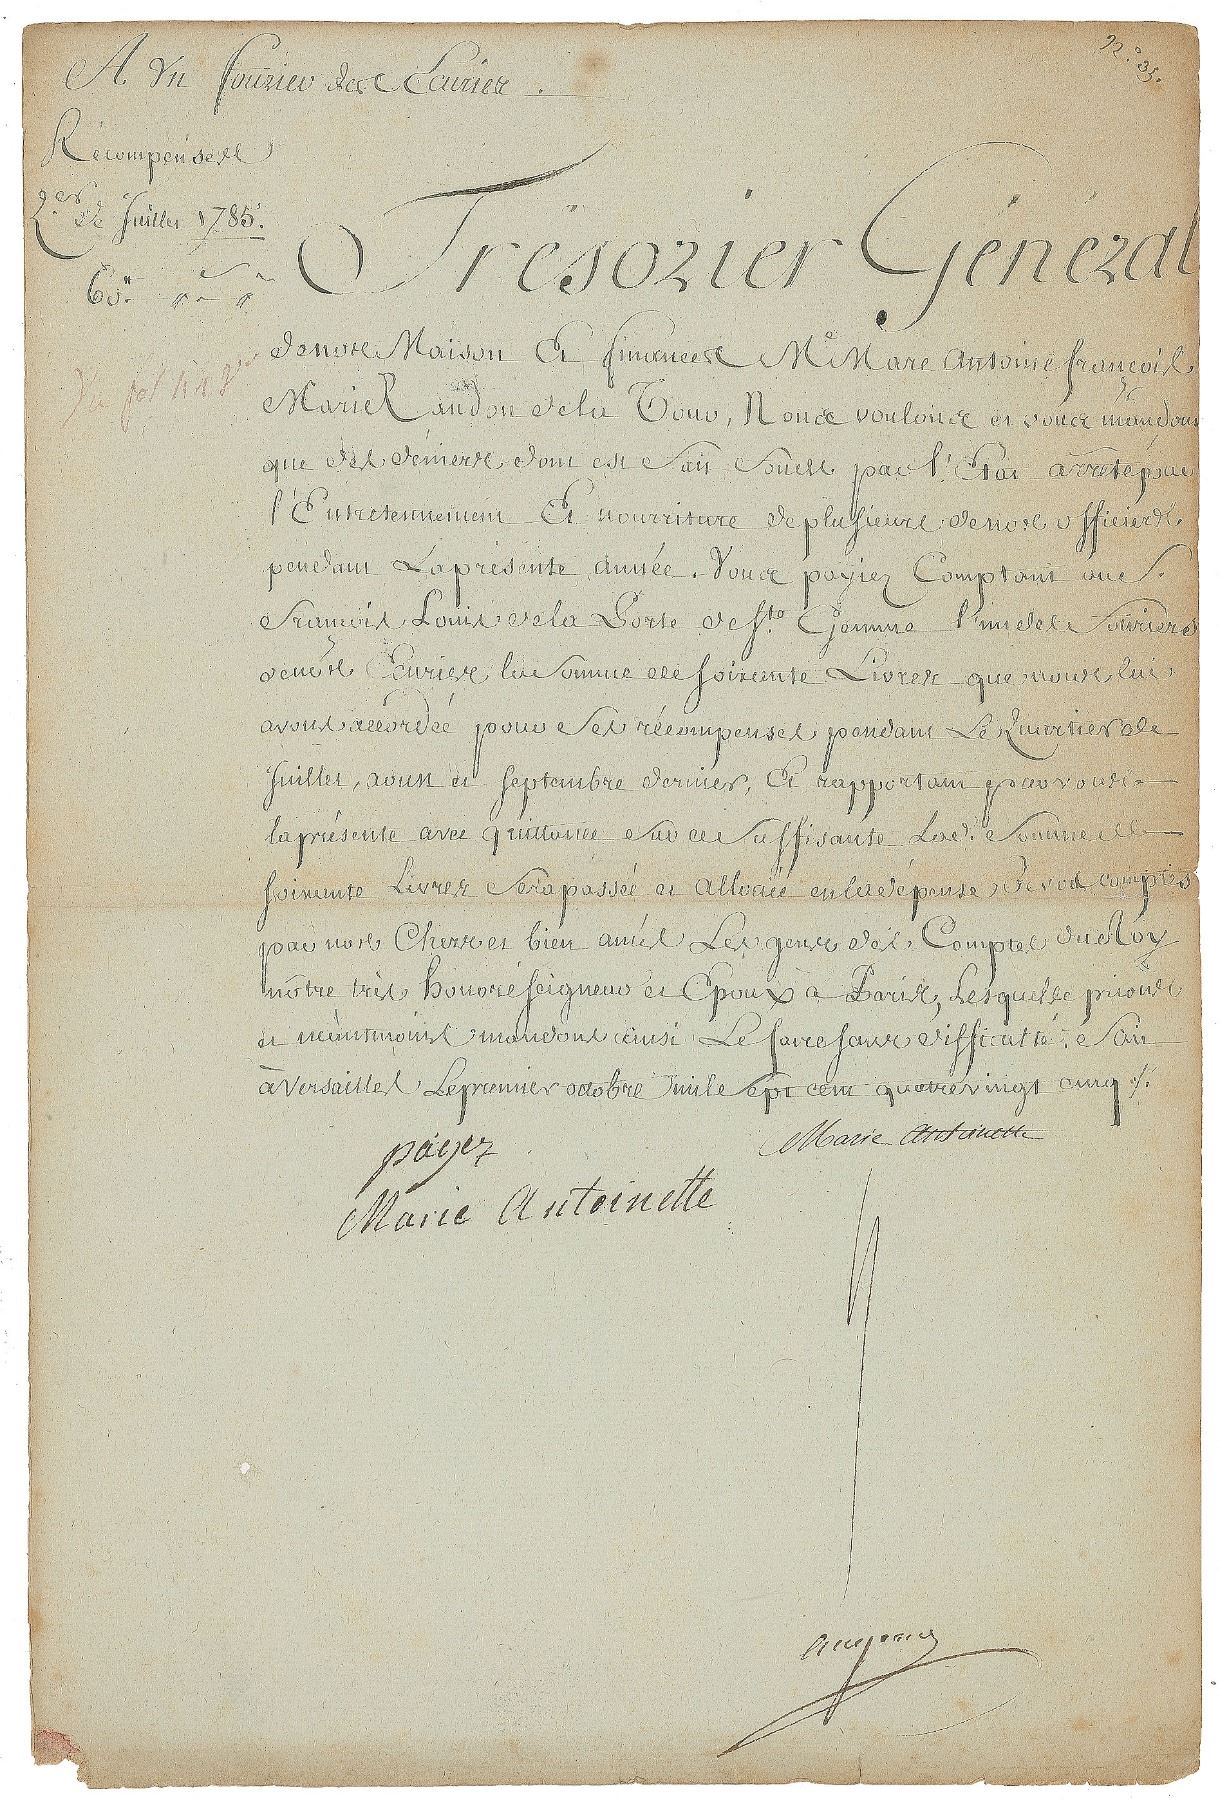 A Un fourier des Ecuries.
N.° 35.
Récompenses
q.er de Juillet 1785.
60.tt " "
Vu fol
Trésorier Général
de notre Maison Et finances Me Marc Antoine françois
Marie Randon de la Tour, Nous voulons et vous mandons
que des deniers dont est fait fonds par l'Etat arreté pour
l'Entretennement Et nourriture de plusieurs de nos officiers
pendant la présente année. Vous payiez Comptant au S.
François Louis de la Porte de Ste Gemme l'un des fouriers
de nos Ecuries la Somme de soixante Livres que nous lui
avons accordée pour Ses récompenses pendant Le Quartier de
Juillet, aoust et septembre dernier, Et rapportant par vous
la présente avec quittance sur ce Suffisante Lad. Somme de
soixante Livres Sera passée et allouée en la dépense de vos comptes
par nos Chers et bien amés Les gens des Comptes du Roy
nôtre très honoré seigneur et Epoux a Paris, Lesquels prions
et néantmoins mandons ainsi Le faire sans difficulté. Fait
à Versailles Le premier octobre mile Sept cent quatrevingt cinq ./.
Marie Antoinette
payez
Marie Antoinette